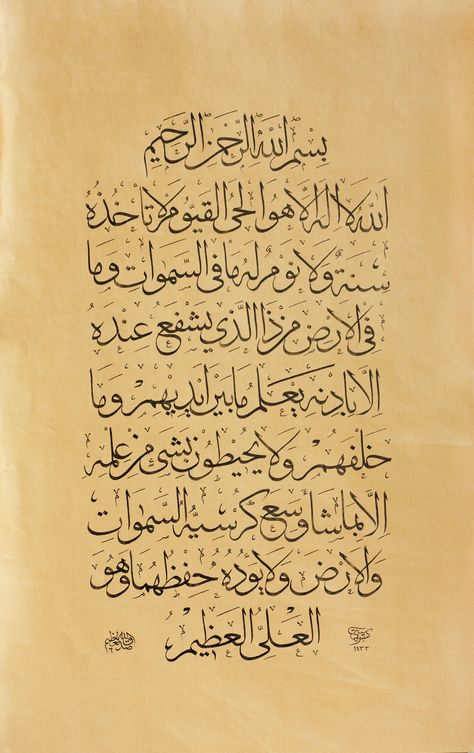 بسم الله الرحمن الرحيم
الله لا اله الا هو الحي القيوم لا تاخذه
سنة ولا نوم له ما في السموات وما
في الارض من ذا الذي يشفع عنده
الا باذنه يعلم ما بين ايديهم وما
خلفهم ولا يحيطون بشئ من علمه
الا بما شا وسع كرسيه السموات
والارض ولا يوده حفظهما وهو
العلي العظيم
صدق الله العظيم
١٤٣٣